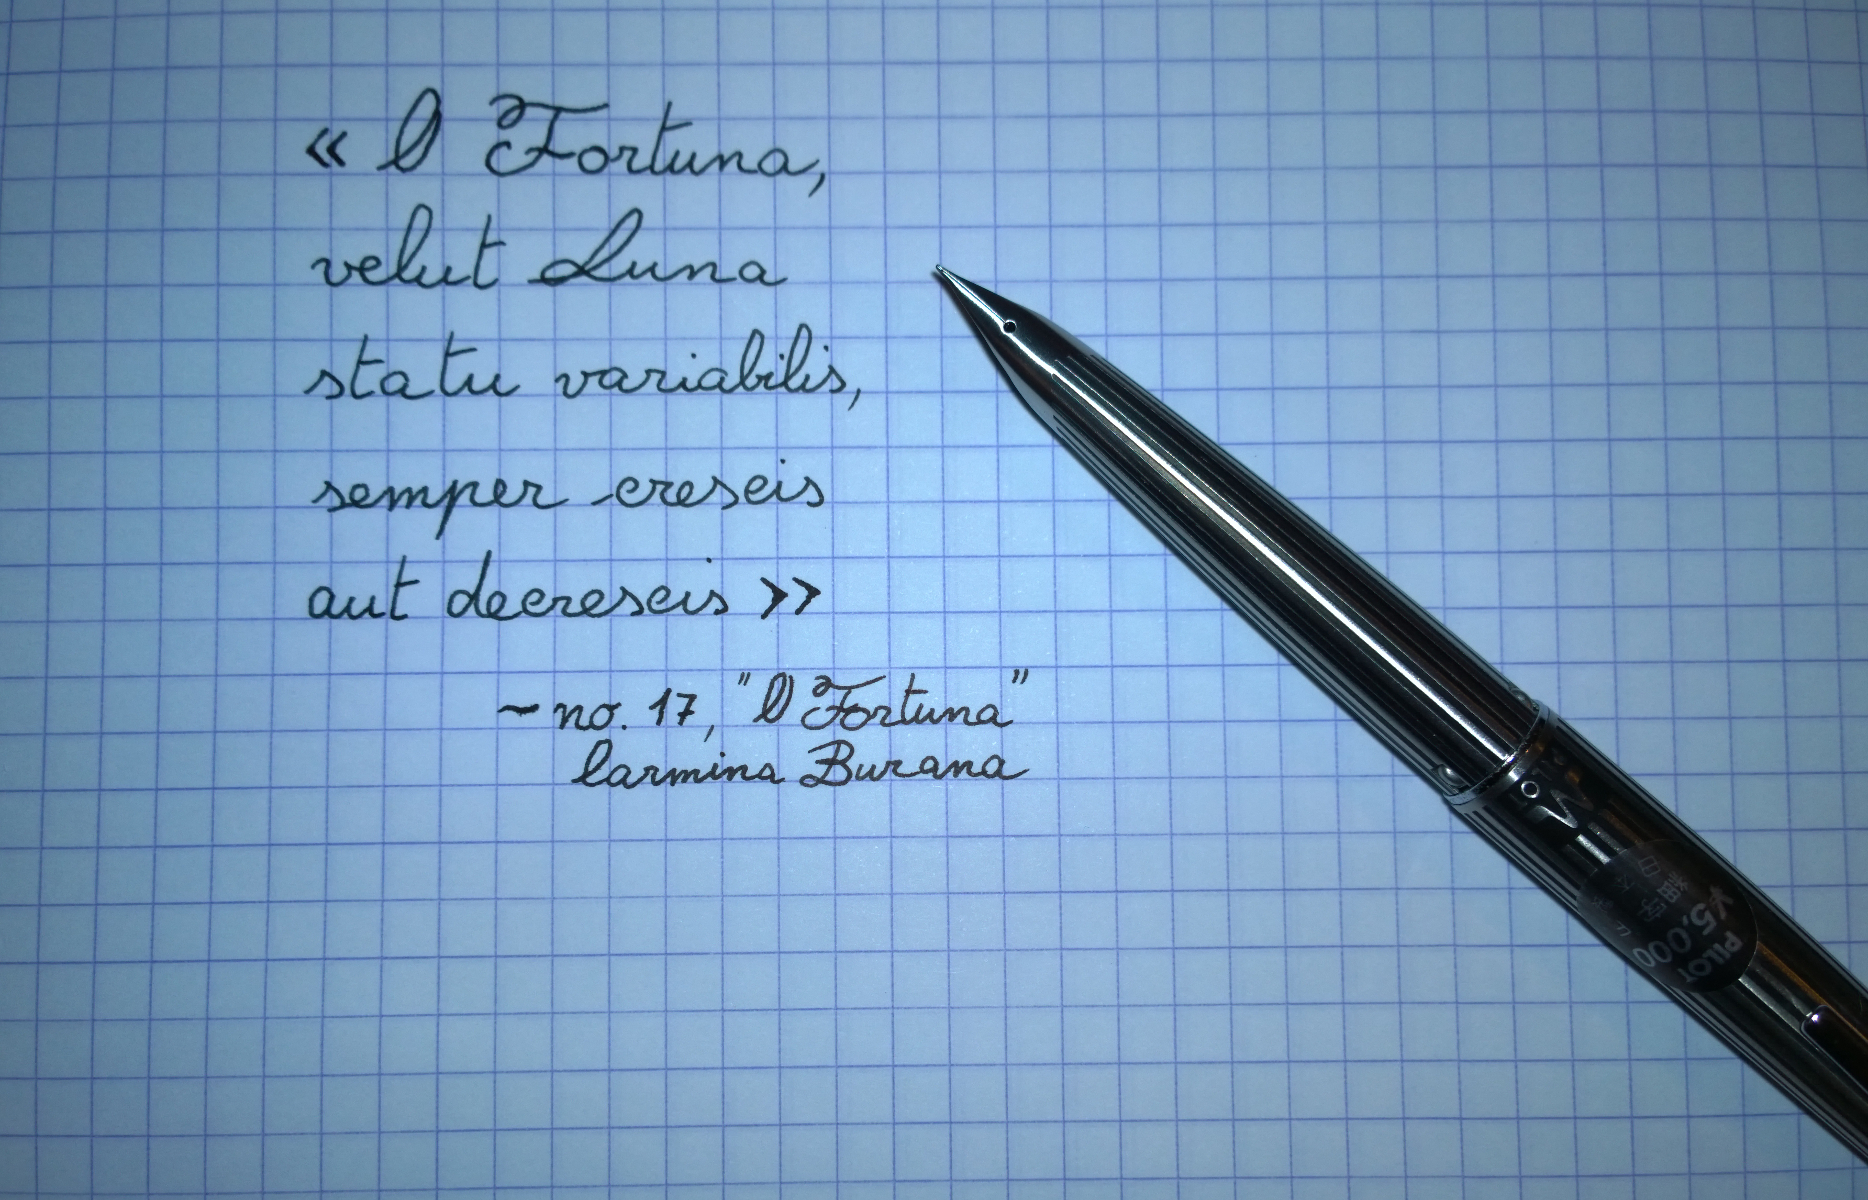 « O Fortuna,
velut Luna
statu variabilis,
semper crescis
aut decrescis »
~ no. 17, "O Fortuna"
Carmina Burana
PILOT
¥5,000
細字